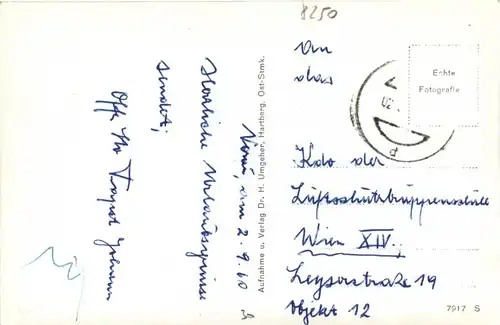 8250
An
das
Echte
Fotografie
Kdo der
Luftschutztruppenschule
Wien XIV.,
Leyserstraße 19
Objekt 12
7917 S
Aufnahme u. Verlag Dr. H. Umgeher, Hartberg, Ost-Stmk.
am 2.9.60
Herzliche Urlaubsgrüsse
sendet;
Johann